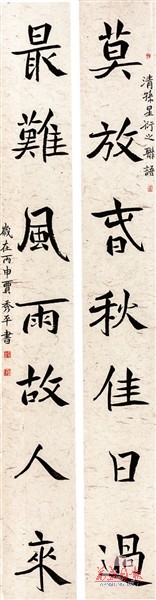 莫放春秋佳日過
清孫星衍之聯語
最難風雨故人來
歲在丙申賈秀平書